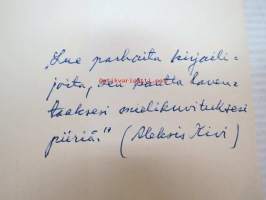 "Lue parhaita kirjaili-
joita, sen kautta laven-
taaksesi mielikuvituksesi
piiriä." (Aleksis Kivi)